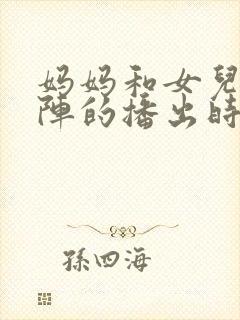 妈妈和女兒
陣的播出時
孫四海